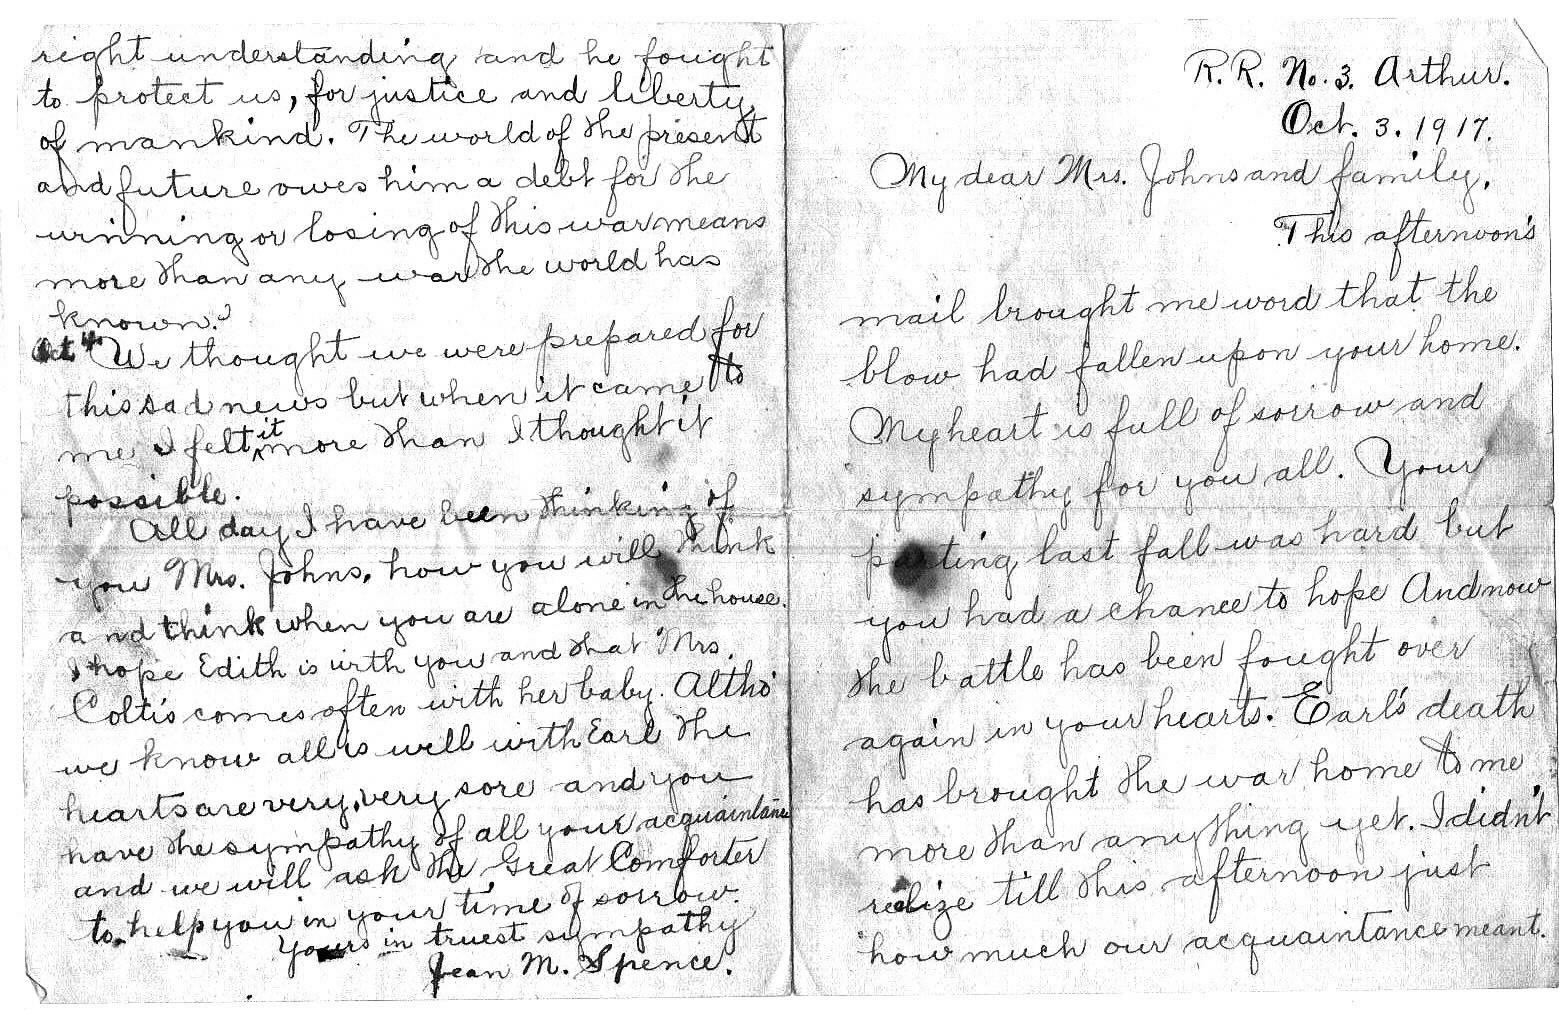 R. R. No. 3. Arthur.
Oct. 3. 1917.
My dear Mrs. Johns and family,
This afternoon's
mail brought me word that the
blow had fallen upon your home.
My heart is full of sorrow and
sympathy for you all. Your
parting last fall was hard but
you had a chance to hope And now
the battle has been fought over
again in your hearts. Earl's death
has brought the war home to me
more than anything yet. I didn't
realize till this afternoon just
how much our acquaintance meant.
right understanding and he fought
to protect us, for justice and liberty
of mankind. The world of the present
and future owes him a debt for the
winning or losing of this war means
more than any war the world has
known."
Oct 4. We thought we were prepared for
this sad news but when it came to
me I felt it more than I thought it
possible.
All day I have been thinking of
you Mrs. Johns, how you will think
and think when you are alone in the house.
I hope Edith is with you and that Mrs.
Coltis comes often with her baby. Altho'
we know all is well with Earl the
hearts are very, very sore and you
have the sympathy of all your acquaintance
and we will ask the Great Comforter
to help you in your time of sorrow.
Yours in truest sympathy
Jean M. Spence.